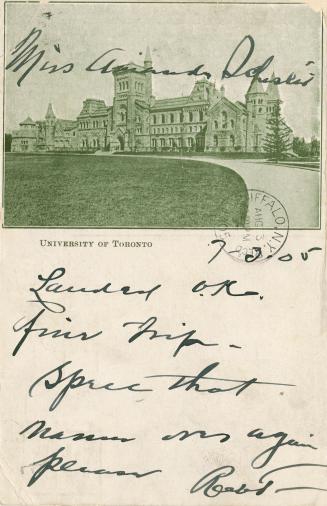 Miss Amanda
BUFFALO, N.Y.
AUG 3
UNIVERSITY OF TORONTO
7 2 05
Landed O.K.
fine trip -
Spree that
over again
please Robt